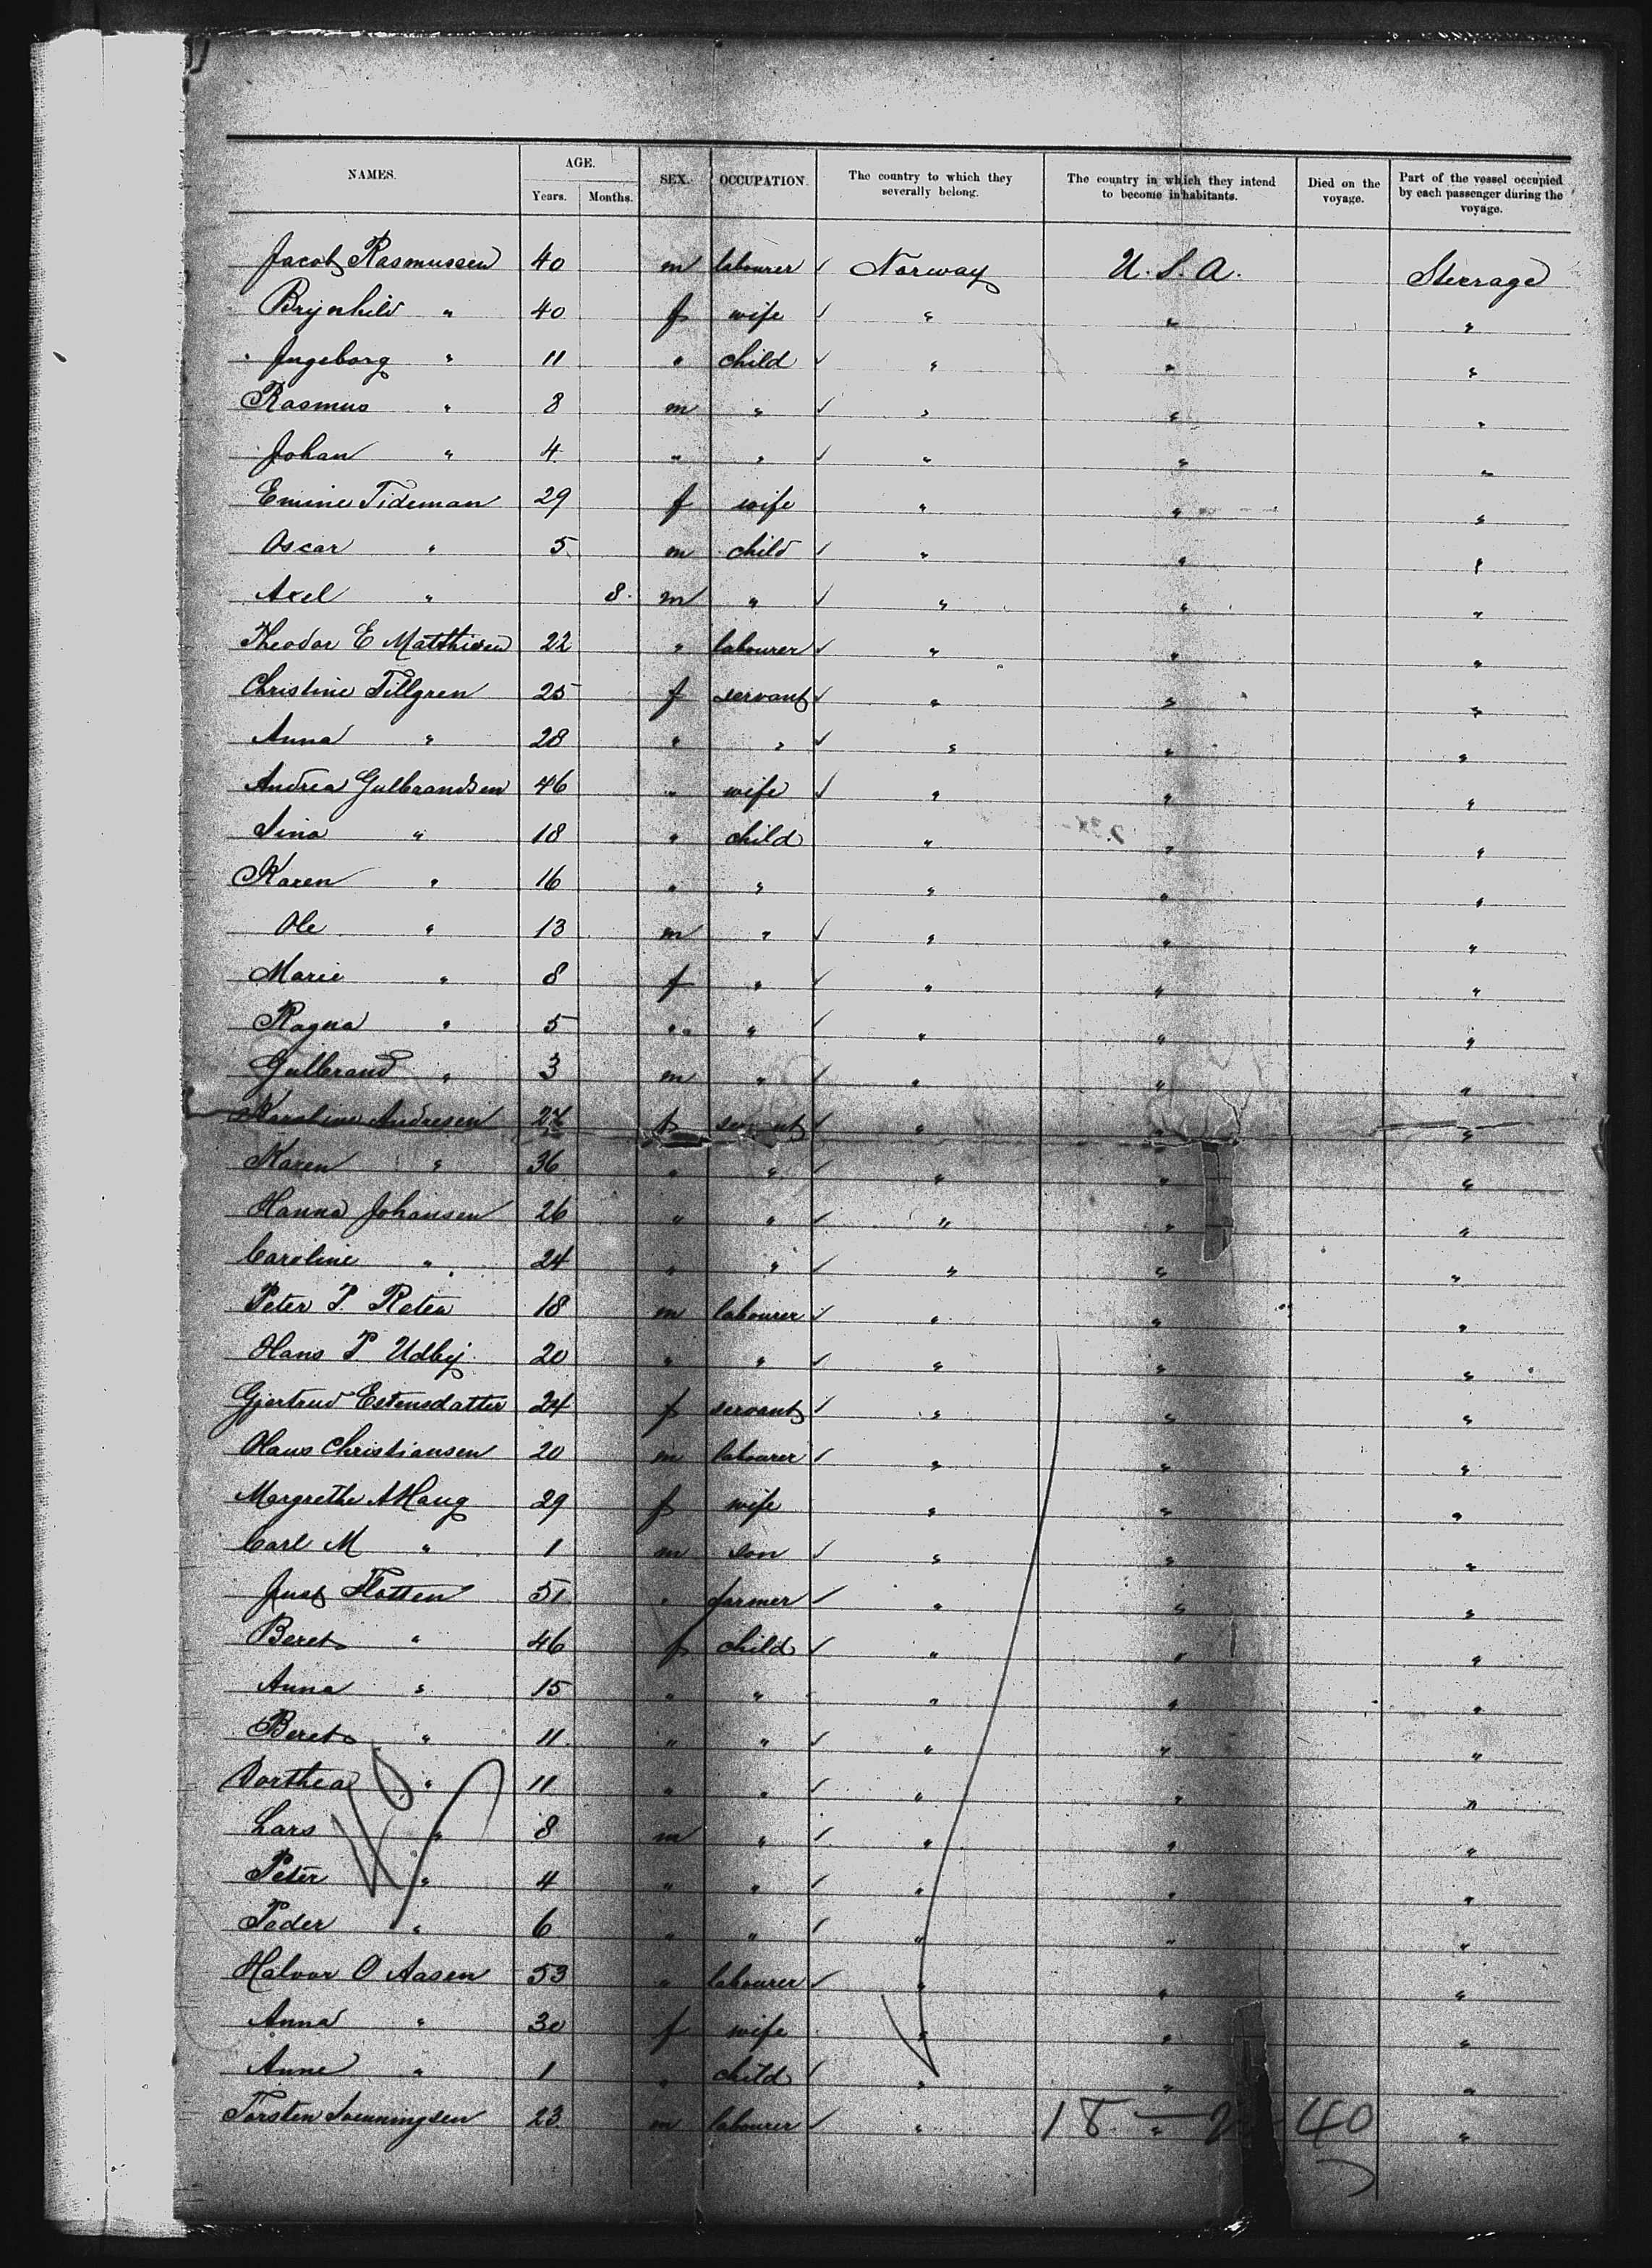 NAMES. AGE. SEX. OCCUPATION. The country to which they severally belong. The country in which they intend to become inhabitants. Died on the voyage. Part of the vessel occupied by each passenger during the voyage.
Years. Months.
Jacob Rasmussen 40 m labourer ✓ Norway U.S.A. Steerage
Brynhild " 40 f wife ✓ " " "
Ingeborg " 11 " child ✓ " " "
Rasmus " 8 m " ✓ " " "
Johan " 4 " " ✓ " " "
Emine Tideman 29 f wife " " "
Oscar " 5 m child ✓ " " "
Axel " 8 m " ✓ " " "
Theodor E Matthisen 22 " labourer ✓ " " "
Christine Tillgren 25 f servant ✓ " " "
Anna " 28 " " ✓ " " "
Andrea Gulbrandsen 46 " wife ✓ " " "
Sina " 18 " child " " "
Karen " 16 " " " " "
Ole " 13 m " ✓ " " "
Marie " 8 f " ✓ " " "
Ragna " 5 " " ✓ " " "
Gulbrand " 3 m " ✓ " " "
Karoline Andresen f servant ✓ " " "
Karen " 36 " " ✓ " " "
Hanna Johansen 26 " " ✓ " " "
Caroline " 24 " " ✓ " " "
Peter P. 18 m labourer ✓ " " "
Hans P. Udby 20 " " ✓ " " "
Gjertrud Estensdatter 24 f servant ✓ " " "
Hans Christiansen 20 m labourer ✓ " " "
Margrethe A Haug 29 f wife " " "
Carl M " 1 m son ✓ " " "
Flotten 51 " farmer ✓ " " "
Beret " 46 f child ✓ " " "
Anna " 15 " " " " "
Beret " 11 " " ✓ " " "
Dorthea " 11 " " ✓ " " "
Lars " 8 m " ✓ " " "
Peter " 4 " " ✓ " " "
Peder " 6 " " ✓ " " "
Halvor O Aasen 53 " labourer ✓ " " "
Anna " 30 f wife " " "
Anne " 1 " child ✓ " " "
Torsten 23 m labourer ✓ " " "
40